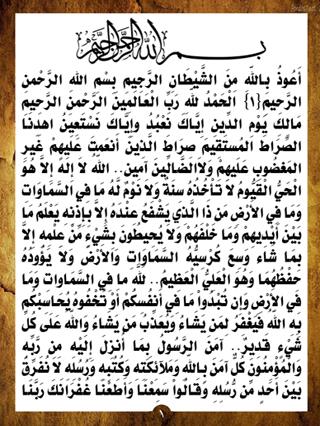 بسم الله الرحمن الرحيم
أعوذ بالله من الشيطان الرجيم بسم الله الرحمن
الرحيم {١} الحمد لله رب العالمين الرحمن الرحيم
مالك يوم الدين إياك نعبد وإياك نستعين اهدنا
الصراط المستقيم صراط الذين أنعمت عليهم غير
المغضوب عليهم ولاالضالين آمين.. الله لا إله إلا هو
الحي القيوم لا تأخذه سنة ولا نوم له ما في السماوات
وما في الأرض من ذا الذي يشفع عنده إلا بإذنه يعلم ما
بين أيديهم وما خلفهم ولا يحيطون بشيء من علمه إلا
بما شاء وسع كرسيه السماوات والأرض ولا يؤوده
حفظهما وهو العلي العظيم.. لله ما في السماوات وما
في الأرض وإن تبدوا ما في أنفسكم أو تخفوه يحاسبكم
به الله فيغفر لمن يشاء ويعذب من يشاء والله على كل
شيء قدير.. آمن الرسول بما أنزل إليه من ربه
والمؤمنون كل آمن بالله وملائكته وكتبه ورسله لا نفرق
بين أحد من رسله وقالوا سمعنا وأطعنا غفرانك ربنا
١